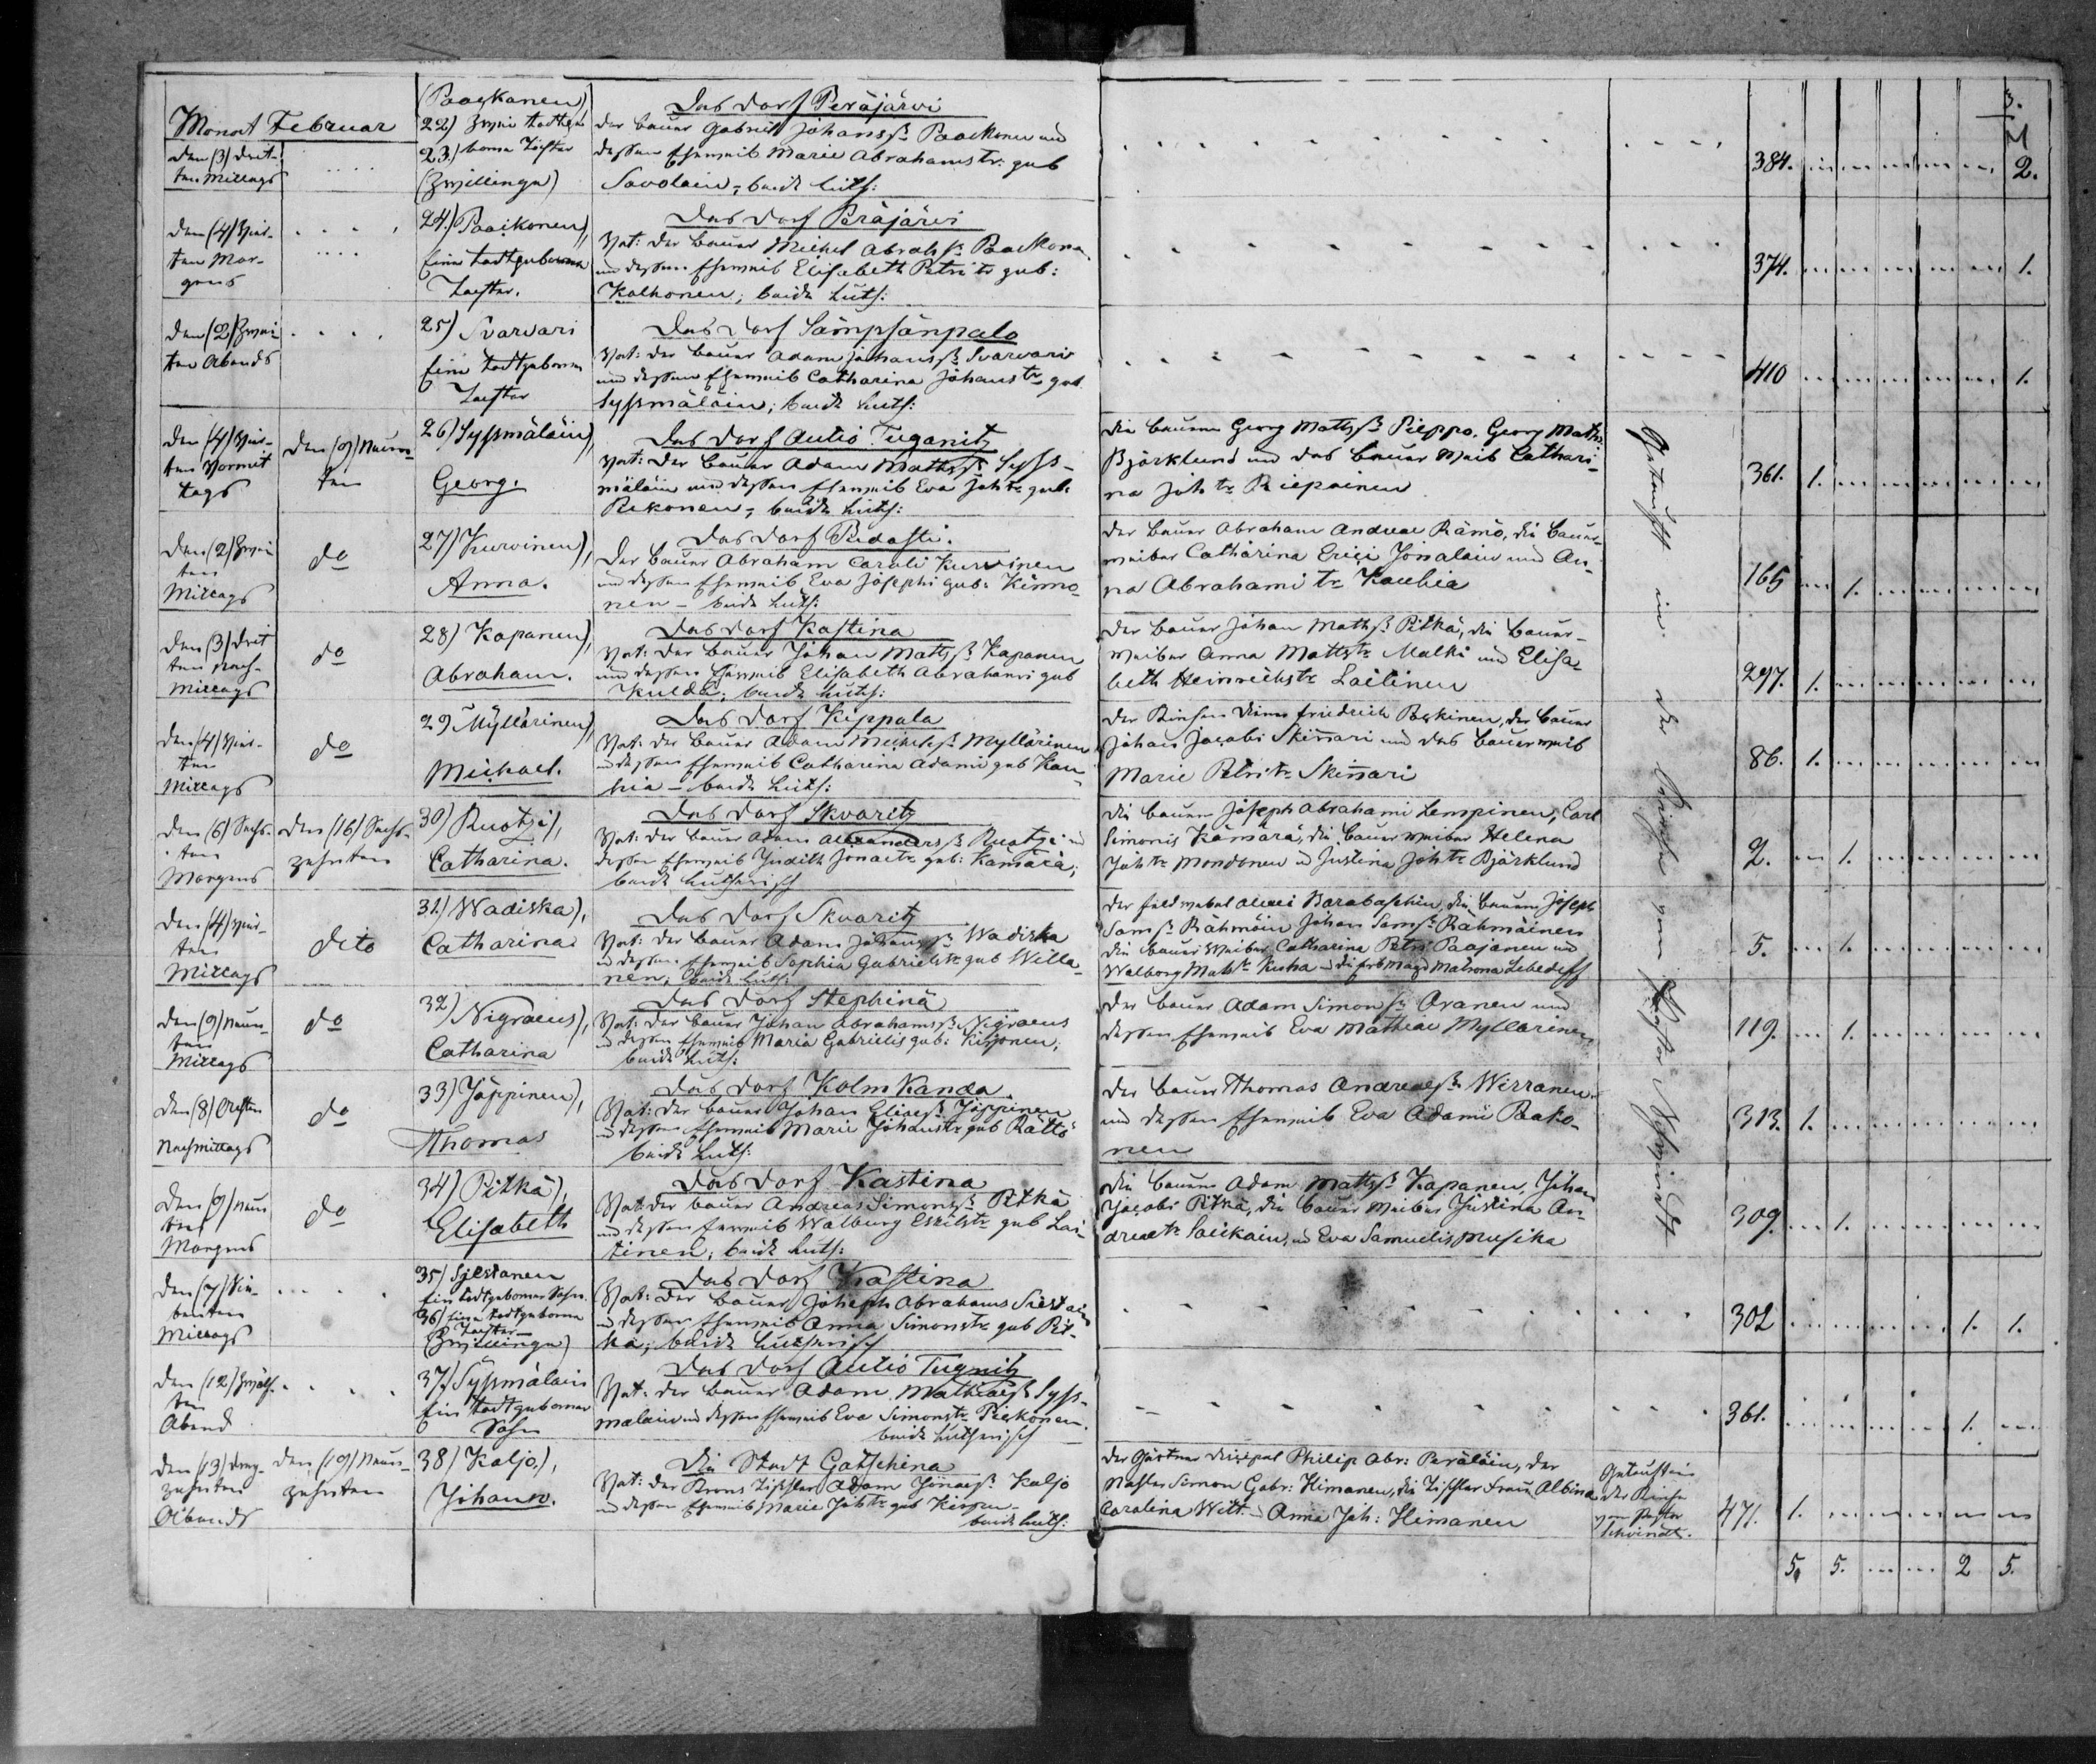 3.
Monat Februar
den (3) drit-
ten Mittags
(Paaskanen),
22) Zwei todtge-
23) borne Töchter
(Zwillinge)
Das Dorf Peräjärwi
der Bauer Gabriel Johanss: Paaskonen und
dessen Eheweib Marie Abrahamstr: geb
Savolain; beide luth:
384. 2.
den (4) vier-
ten Mor-
gens
24) Paaikonen),
Eine todtgeborne
Tochter.
Das Dorf Peräjärwi
Vat: der Bauer Michel Abrahs:
und dessen Eheweib Elisabeth Petri tr geb:
Kolhonen; beide luth:
374. 1.
den (2) Zwei-
ten Abends
25) Svarvari
Eine todtgeborne
Tochter
Das Dorf Sämpsänpalo
Vat: der Bauer Adam Johanss: Svarvari
und dessen Eheweib Catharina Johans tr geb
Syssmäläin; beide luth:
410 1.
den (4) vier-
ten Vormit
tags
den (9) Neun-
ten
26) Syssmäläin),
Georg.
Das Dorf Autio Tuganitz
Vat: der Bauer Adam Mathss: Syss-
mäläin und dessen Eheweib Eva Joh tr geb:
Rekonen; beide luth:
die Bauern Georg Mathss: Pieppo, Georg Mathss:
Björklund und das Bauer Weib Cathari-
na Joh tr Riepoinen
361. 1.
den (2) Zwei
ten
Mittags
do
27) Kurvinen),
Anna.
Das Dorf Pudasti.
Der Bauer Abraham Caroli Kurvinen
und dessen Eheweib Eva Josephi geb: Kinno-
nen – beide luth:
der Bauer Abraham Andreae Rämö, die Bauer-
weiber Catharina Erici Jonalain und An-
na Abrahami tr Kauhia
165 1.
den (3) drit
ten Nach-
mittags
do
28) Kapanen),
Abraham.
Das Dorf Kastina
Vat: der Bauer Johan Mathss: Kapanen
und dessen Eheweib Elisabeth Abrahami geb
Kulda; beide luth:
der Bauer Johan Mathss: Pitkä, die Bauer-
weiber Anna Mattstr Malki und Elisa-
beth Heinrichstr Laitinen
297. 1.
den (4) vier-
ten
Mittags
do
29) Myllärinen),
Michael.
Das Dorf Kippala
Vat: der Bauer Adam Michelss: Myllärinen
und dessen Eheweib Catharina Adami geb Kau-
hia – beide luth:
der Kirchen Diener Friedrich Poskinen, der Bauer
Johan Jacobi Skinnari und das Bauerweib
Marie Petri tr Skinnari
86. 1.
den (6) Sechs-
ten
Morgens
den (16) Sechs-
zehnten
30) Ruotzi),
Catharina.
Das Dorf Skvaritz
Vat: der Bauer Adam Alexanderss: Ruotzi und
dessen Eheweib Judith Jonae tr geb: Kämärä;
beide lutherisch
die Bauern Joseph Abrahami Lempinen, Carl
Simonis Kämärä, die Bauerweiber Helena
Joh tr Mondonen und Justina Joh tr Björklund
2. 1.
den (4) vier-
ten
Mittags
deto
31) Wadiska),
Catharina.
Das Dorf Skvaritz
Vat: der Bauer Adam Johanss: Wadiska
und dessen Eheweib Sophia Gabrielstr geb Willa-
nen; beide luth:
der Feldwebel Alexei Barabaschin, die Bauern Joseph
Sams: Rähmöin, Johan Sams: Rähmäinen
die Bauer Weiber Catharina Petri Paajanen und
Walborg Mattstr Kusha Matrona Lebedeff
5. 1.
den (9) Neun-
ten
Mittags
do
32) Nigraeus),
Catharina
Das Dorf Stephinä
Vat: der Bauer Johan Abrahamss: Nigraeus
und dessen Eheweib Maria Gabrielis geb: Kiisonen;
beide luth:
der Bauer Adam Simons: Oranen und
dessen Eheweib Eva Matheae Myllarinen
119. 1.
den (8) Achten
Nachmittags
do
33) Jäppinen),
Thomas
Das Dorf Kolmkanda
Vat: der Bauer Johan Eliaess: Jäppinen
und dessen Eheweib Marie Johanstr geb Rättö
beide luth:
der Bauer Thomas Andreaess: Wirranen
und dessen Eheweib Eva Adami Paako-
nen
313. 1.
den (9) Neun
ten
Morgens
do
34) Pitkä),
Elisabeth
Das Dorf Kastina
Vat: der Bauer Andreas Simonss: Pitkä
und dessen Eheweib Walburg Eskilstr geb Lai-
tinen; beide luth:
die Bauern Adam Mattss: Kapanen, Johan
Jacobi Pitkä, die Bauer Weiber Justina An-
dreae tr Saikain, und Eva Samuelis Musika
309. 1.
Getauft in der Kirche vom Pastor Schwindt
den (7) Sie-
benten
Mittags
35) Sjestanen
Ein todtgeborner Sohn.
36) Eine todtgeborne
Tochter
(Zwillinge)
Das Dorf Kastina
Vat: der Bauer Joseph Abrahams
und dessen Eheweib Anna Simonstr geb Pit-
kä; beide lutherisch
302 1. 1.
den (12) Zwölf-
ten
Abend
37) Syssmälain
Ein todtgeborner
Sohn
Das Dorf Autio Tugnitz
Vat: der Bauer Adam Mathiaess: Syss-
mälain und dessen Eheweib Eva Simonstr Pieskonen.
beide lutherisch
361. 1.
den (13) Drey-
zehnten
Abends
den (19) Neun-
zehnten
38) Kaljo),
Johann.
Die Stadt Gatschina
Vat: der Krons Tischler Adam Jonaess: Kaljo
und dessen Eheweib Marie Joh tr geb
beide luth:
der Gärtner Discipel Philip Abr: Peräläin, der
Simon Gabr: Himanen, die Tischler Frau Albina
Carolina Witt und Anna Joh: Himanen
Getauft in
der Kirche
vom Pastor
Schwindt.
471. 1.
5. 5. 2 5.